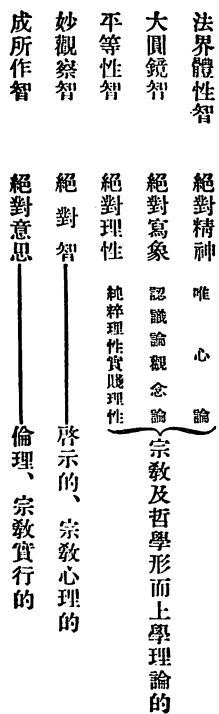 法界體性智　絕對精神　唯心論
大圓鏡智　絕對寫象　認識論觀念論
平等性智　絕對理性　純粹理性實踐理性
宗教及哲學形而上學理論的
妙觀察智　絕對智——啓示的、宗教心理的
成所作智　絕對意思——倫理、宗教實行的